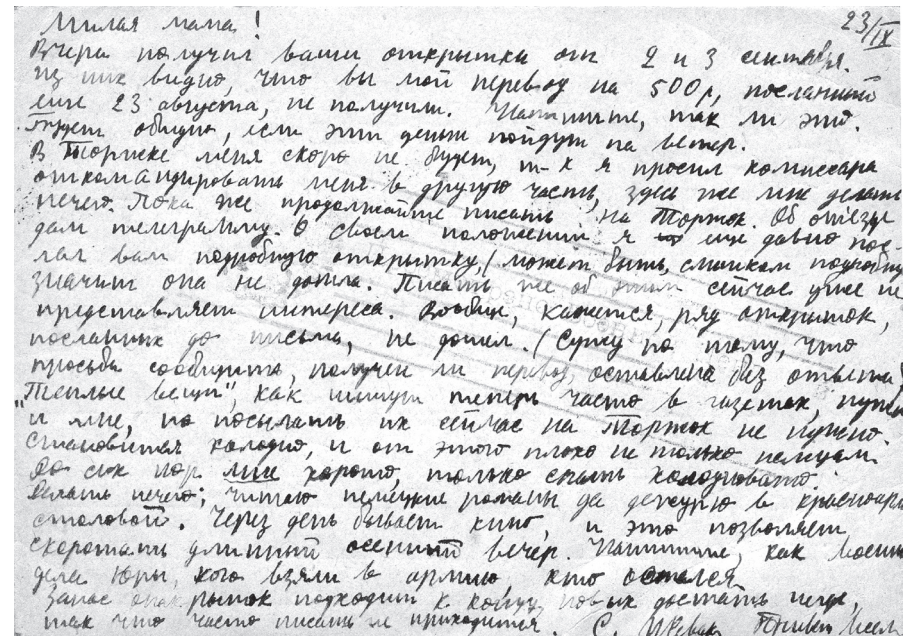 23/IX
Милая мама!
Вчера получил ваши открытки от 2 и 3 сентября.
Из них видно, что вы мой перевод на 500р, посланный
еще 23 августа, не получили. Напишите, так ли это.
Будет обидно, если эти деньги пойдут на ветер.
В Торжке меня скоро не будет, т-к я просил комиссара
откомандировать меня в другую часть, здесь же мне делать
нечего. Пока же продолжайте писать на Торжок. Об отъезде
дам телеграмму. О своем положении я еще давно пос-
лал вам подробную открытку, (может быть, слишком подробную
значит она не дошла. Писать же об этом сейчас уже не
представляет интереса. Вообще, кажется, ряд открыток,
посланных до письма, не дошел. (Сужу по тому, что
просьба сообщить, получен ли перевод, оставлена без ответа)
"Теплые вещи", как пишут теперь часто в газетах, нужны
и мне, но посылать их сейчас на Торжок не нужно.
Становится холодно, и от этого плохо не только немцам.
До сих пор мне хорошо, только спать холодновато.
Делать нечего; читаю немецкие романы да дежурю в красноарм
столовой. Через день бывает кино, и это позволяет
скоротать длинный осенний вечер. Напишите, как военные
дела Юры, кого взяли в армию, кто остался
Запас открыток подходит к концу, новых достать негде,
так что часто писать не приходится. Привет всем